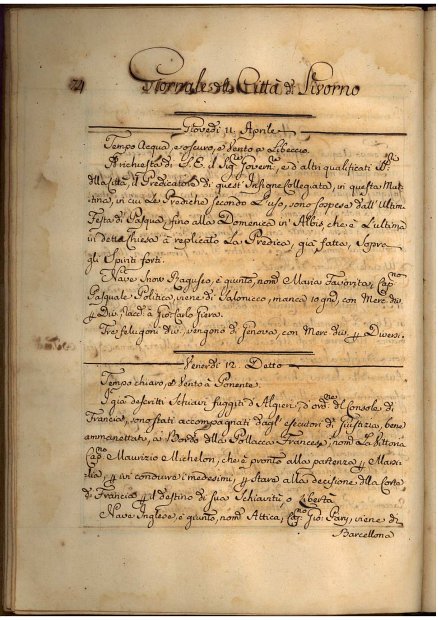 74
Giornale della Città di Livorno
Giovedì 11. Aprile
Tempo Acqua, e oscuro, e Vento a Libeccio.
A richiesta di S.E. il Sig.re Govern.re, e d altri qualificati
della Città, il Predicatore di quest Insigne Collegiata, in questa Mat-
tina, in cui Le Prediche secondo L'uso, sono sospese dall' Ultim
Festa di Pasqua, fino alla Domenica in Albis, che è L'ultima
in detta Chiesa à replicato La Predica, già fatta, Sopra
gli Spiriti forti.
Nave Snow Raguseo, è giunto, nom.o Maria Favorita, Cap.no
Pasquale Politica, viene di Salonicco, manca 10 gni, con Merc. div.
p Div. Racc. à Gio: Carlo Siera.
Tre felugoni div. vengono di Genova, con Merc. div. p Diversi.
Venerdì 12. Detto
Tempo chiaro, e Vento à Ponente.
I già descritti Schiavi fuggiti d'Algieri, d'ord.ne del Console di
Francia, sono stati accompagnati dagl' esecutori di Giustizia, bene
ammanettati, a Bordo della Pollacca Francese, nom.a La Vittoria
Cap.no Maurizio Michelon, che è pronto alla partenza p Marsi-
lia, p ivi condurre i medesimi, p stare alla decisione della Corte
di Francia p il destino di sua Schiavitù o Libertà.
Nave Inglese, è giunto, nom.o Attica, Cap.no Gio: Pary, viene di
Barcellona